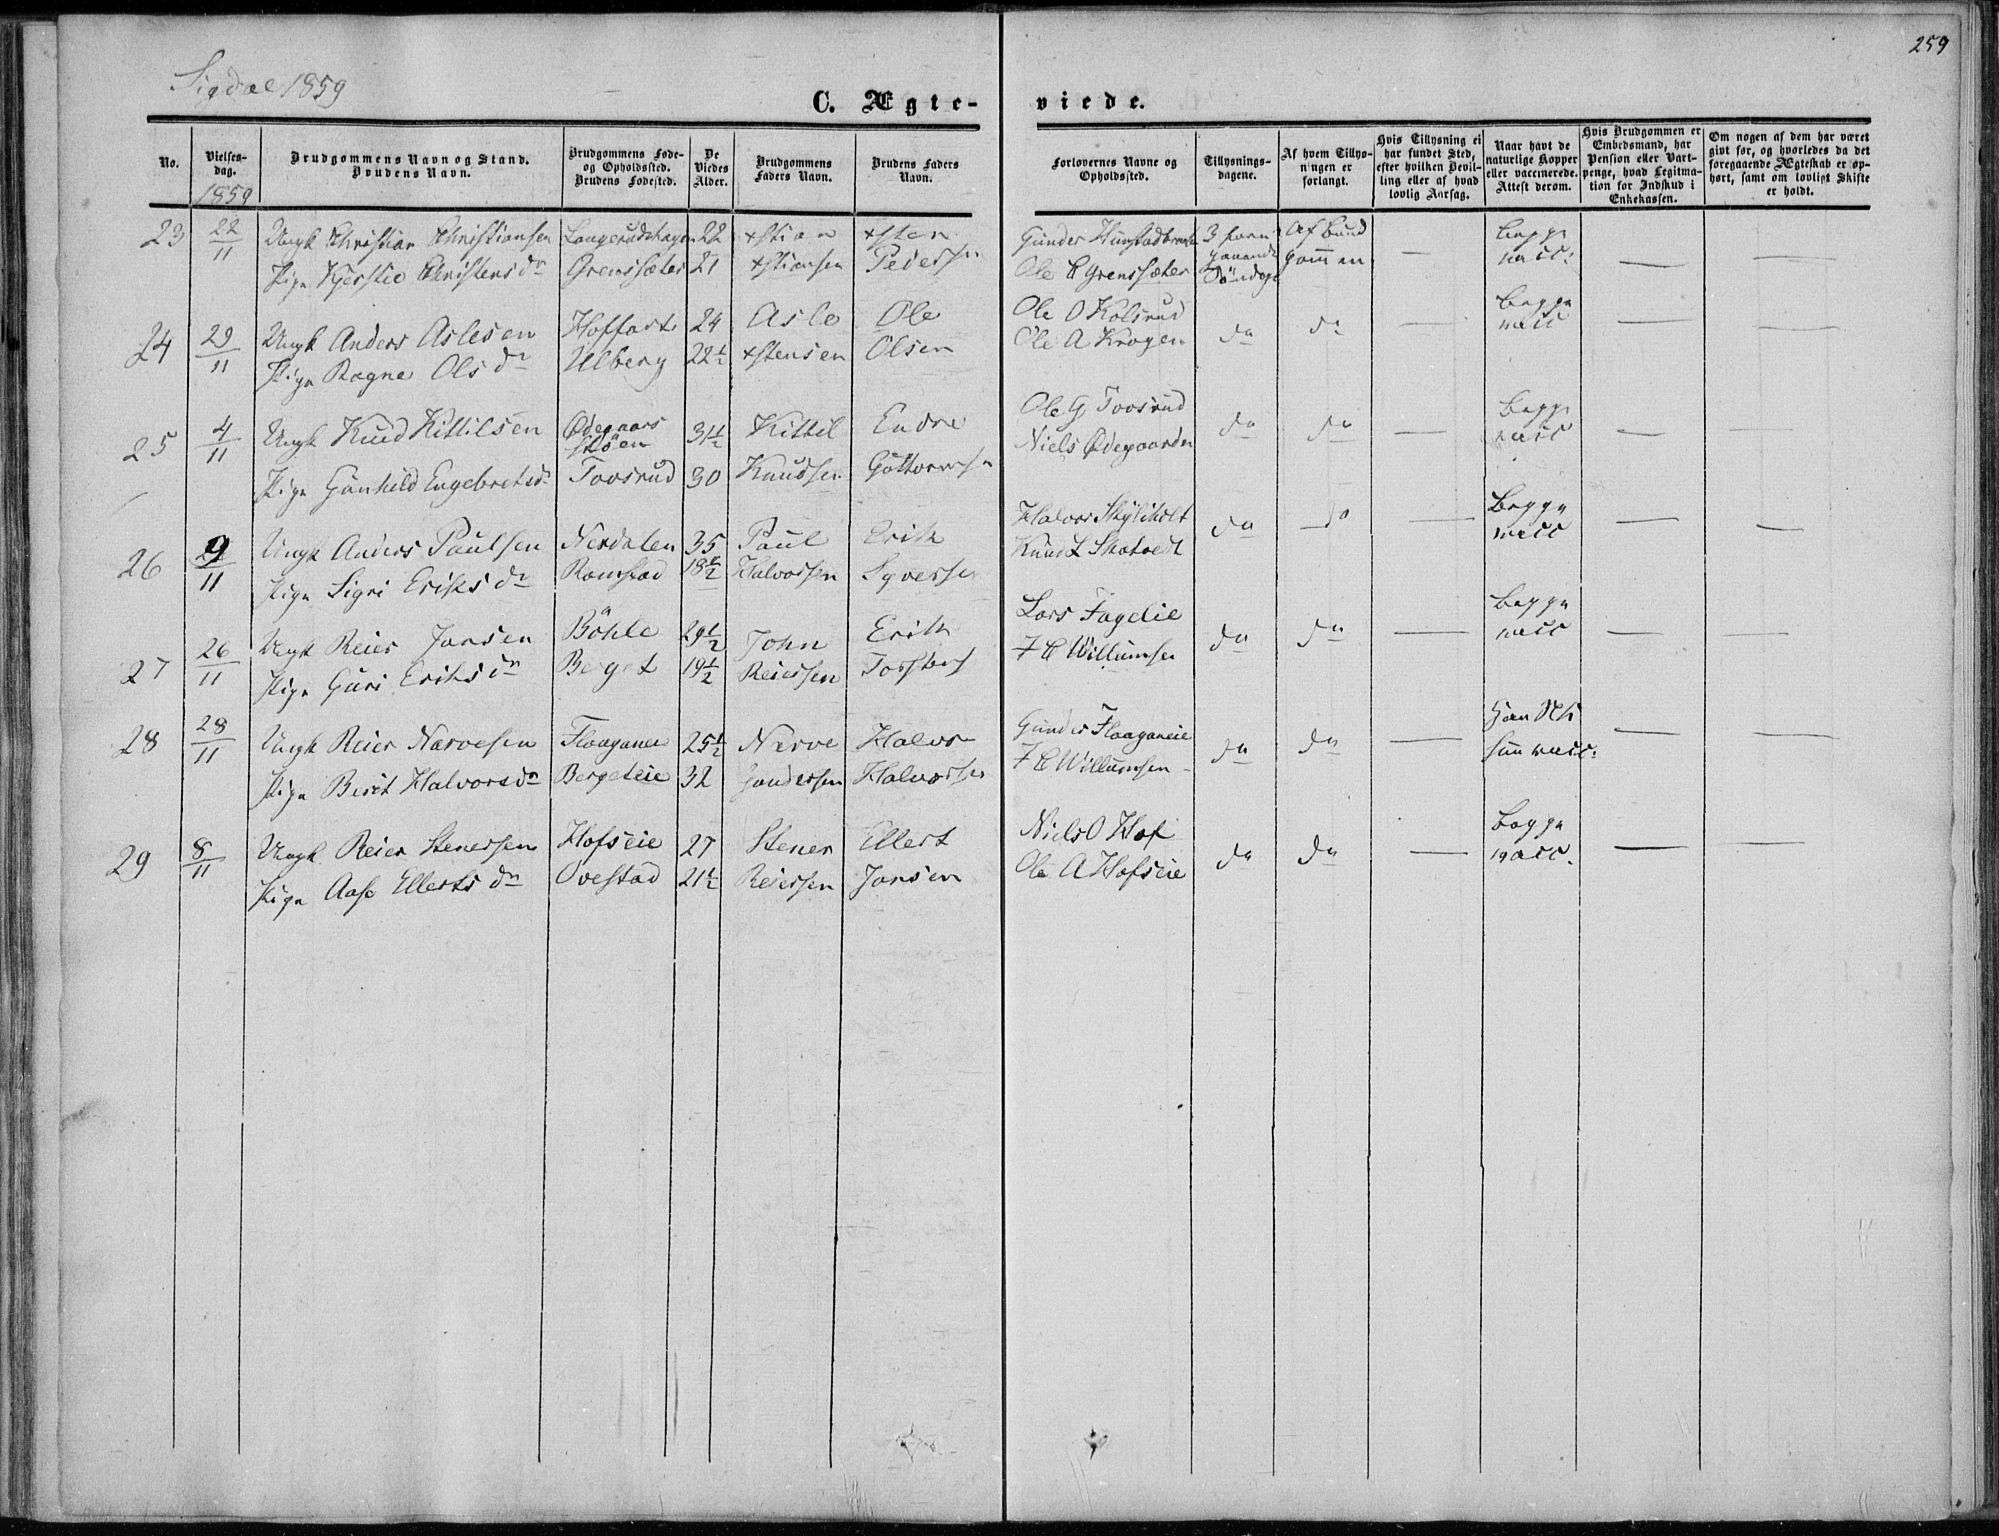 259
Sigdal 1859
C. Ægte- viede.
No.
Vielses-dag.
Brudgommens Navn og Stand. Brudens Navn.
Brudgommens Føde- og Opholdssted. Brudens Fødested.
De Viedes Alder.
Brudgommens Faders Navn.
Brudens Faders Navn.
Forlovernes Navne og Opholdssted.
Tillysnings-dagene.
Af hvem Tillysningen er forlangt.
Hvis Tillysning ei har fundet Sted, efter hvilken Bevilling eller af hvad lovlig Aarsag.
Naar havt de naturlige Kopper eller vaccinerede. Attest derom.
Hvis Brudgommen er Embedsmand, har Pension eller Vartpenge, hvad Legitimation for Indskud i Enkekassen.
Om nogen af dem har været givt før, og hvorledes da det foregaaende Ægteskab er ophørt, samt om lovligt Skifte er holdt.
1859
23 22/11 Ungk Christian Christiansen Langerudshagen 22 xstian xsten Gunder 3 foran Af Brud Begge
Pige Kjerstie Christensdr Grensæter 21 xstiansen Pedersen Ole C Grensæter gaaende Søndage gommen vacc: — —
24 29/11 Ungk Anders Aslesen Hoffart 24 Asle Ole Ole O Kolsrud do do — Begge vacc — —
Pige Ragne Olsdr Ulberg 22½ xstensen Olsen Ole A Krogen
25 4/11 Ungk Knud Kittilsen Ødegaards støen 31½ Kittil Endre Ole G Toosrud do do — Begge vacc — —
Pige Gunhild Engebretsdr Toosrud 30 Knudsen Guttormsen Niels Ødegaarden
26 9/11 Ungk Anders Paulsen Nerdalen 35 Paul Erik Halvor Skyliholt do do — Begge vacc — —
Pige Sigri Eriksdr Ramstad 18½ Halvorsen Syversen Knud L Skatvedt
27 26/11 Ungk Reier Jonsen Bøhle 29½ John Erik Lars Fagelie do do — Begge vacc — —
Pige Guri Eriksdr Berget 19½ Reiersen Torstens F C Willumsen
28 28/11 Ungk Reier Narvesen Flaaganeie 25½ Nerve Halvor Gunder Flaaganeie do do — — —
Pige Berit Halvorsdr Bergeteie 32 Gundersen Halvorsen F C Willumsen hun vacc:
29 8/11 Ungk Reier Stenersen Hofseie 27 Stener Ellert Niels O Hof do do — Begge vacc. — —
Pige Aase Ellertsdr Ovestad 21½ Reiersen Jonsen Ole A Hofseie